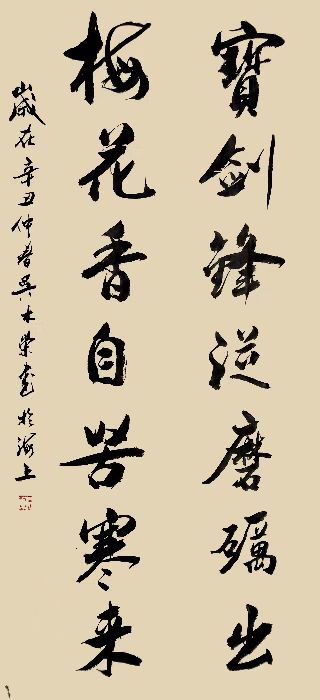 寶劍鋒從磨礪出
梅花香自苦寒来
歲在辛丑仲春吳木榮書於海上